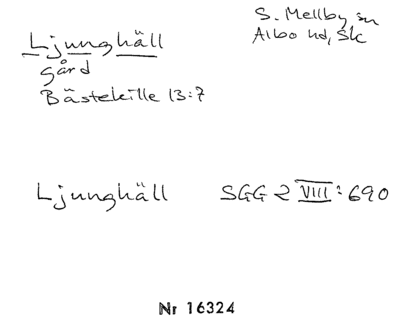 Ljunghäll
S. Mellby sn
Albo hd, Sk
gård
Bästekille 13:7
Ljunghäll SGG 2 VIII:690
Nr 16324